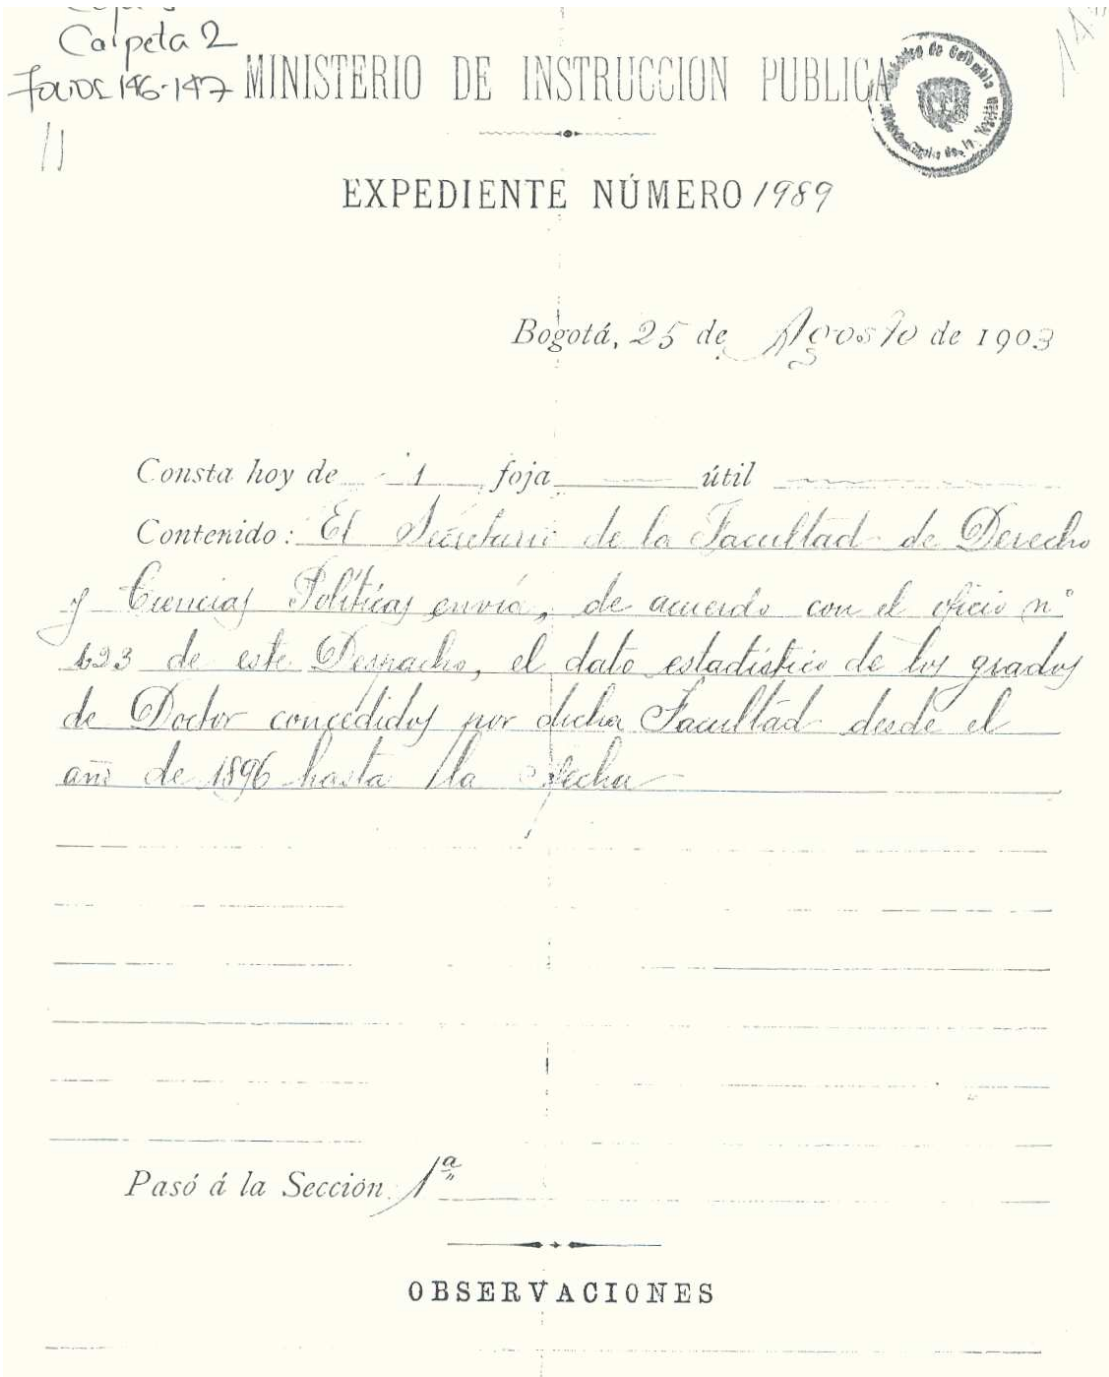 Carpeta 2
Folios 146-147
MINISTERIO DE INSTRUCCION PUBLICA
EXPEDIENTE NÚMERO 1989
Bogotá, 25 de Agosto de 1903
Consta hoy de 1 foja útil
Contenido: El Secretario de la Facultad de Derecho
y Ciencias Políticas envía, de acuerdo con el oficio nº
623 de este Despacho, el dato estadístico de los grados
de Doctor concedidos por dicha Facultad desde el
año de 1896 hasta la fecha
Pasó á la Sección 1ª
OBSERVACIONES